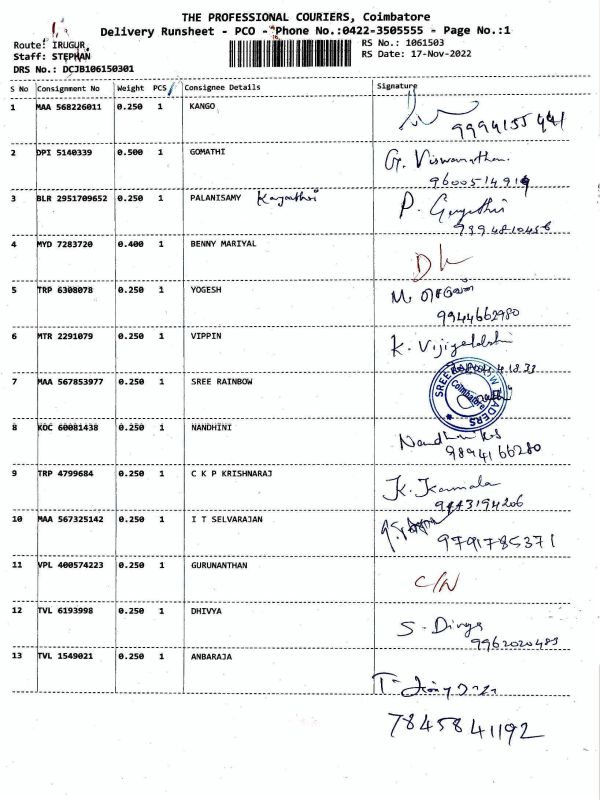 THE PROFESSIONAL COURIERS, Coimbatore
Delivery Runsheet - PCO - Phone No.:0422-3505555 - Page No.:1
Route: IRUGUR
RS No.: 1061503
Staff: STEPHAN
RS Date: 17-Nov-2022
DRS No.: DCJB106150301
S No Consignment No Weight PCS Consignee Details Signature
1 MAA 568226011 0.250 1 KANGO
9994155441
2 DPI 5140339 0.500 1 GOMATHI G. Viswanathan.
9600514919
3 BLR 2951709652 0.250 1 PALANISAMY Kayathri P. Gayathri
9394810456
4 MYD 7283720 0.400 1 BENNY MARIYAL
DL
5 TRP 6308078 0.250 1 YOGESH M.
9944662980
6 MTR 2291079 0.250 1 VIPPIN K.
7 MAA 567853977 0.250 1 SREE RAINBOW
SREE RAINBOW TRADERS
Coimbatore
8 KOC 60081438 0.250 1 NANDHINI
9894166280
9 TRP 4799684 0.250 1 C K P KRISHNARAJ K. Kamala
9443194206
10 MAA 567325142 0.250 1 I T SELVARAJAN
9791785371
11 VPL 400574223 0.250 1 GURUNANTHAN
C/N
12 TVL 6193998 0.250 1 DHIVYA S. Divya
9962020483
13 TVL 1549021 0.250 1 ANBARAJA
7845841192